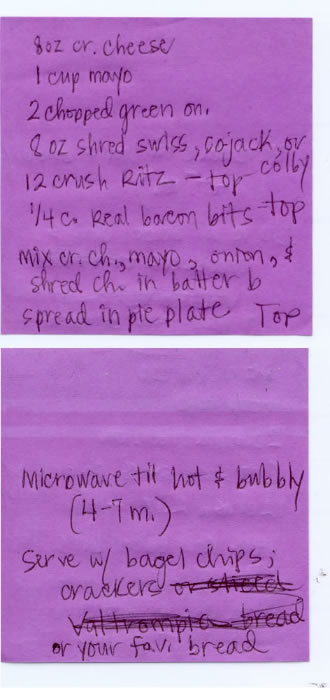 8oz cr. cheese
1 cup mayo
2 chopped green on.
8 oz shred swiss, cojack, or colby
12 crush Ritz - top
1/4 c. Real bacon bits - top
mix cr. ch., mayo, onion, &
shred ch. in batter b
spread in pie plate Top
microwave til hot & bubbly
(4-7 m.)
Serve w/ bagel chips,
crackers or sliced
Valtrompia bread
or your favi bread